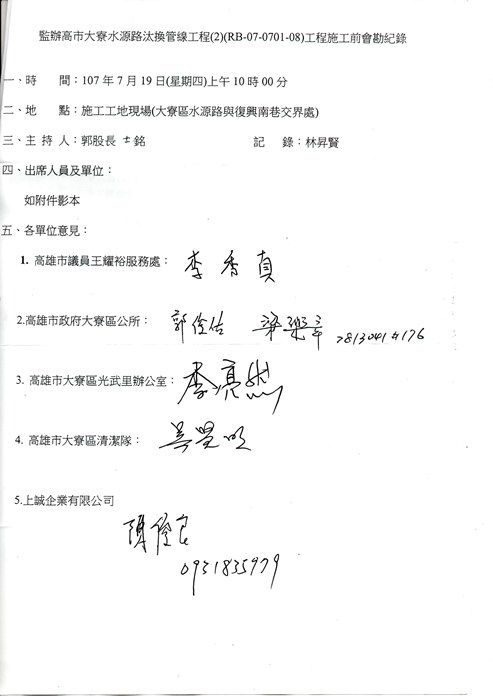 監辦高市大寮水源路汰換管線工程(2)(RB-07-0701-08)工程施工前會勘紀錄
一、時　　間：107年7月19日(星期四)上午10時00分
二、地　　點：施工工地現場(大寮區水源路與復興南巷交界處)
三、主 持 人：郭股長 士銘　　　　記　　錄：林昇賢
四、出席人員及單位：
如附件影本
五、各單位意見：
1. 高雄市議員王耀裕服務處： 李香貞
2.高雄市政府大寮區公所： 郭俊佑 7813041#176
3. 高雄市大寮區光武里辦公室： 李亮然
4. 高雄市大寮區清潔隊： 吳覺明
5.上誠企業有限公司
陳俊良
0931835979